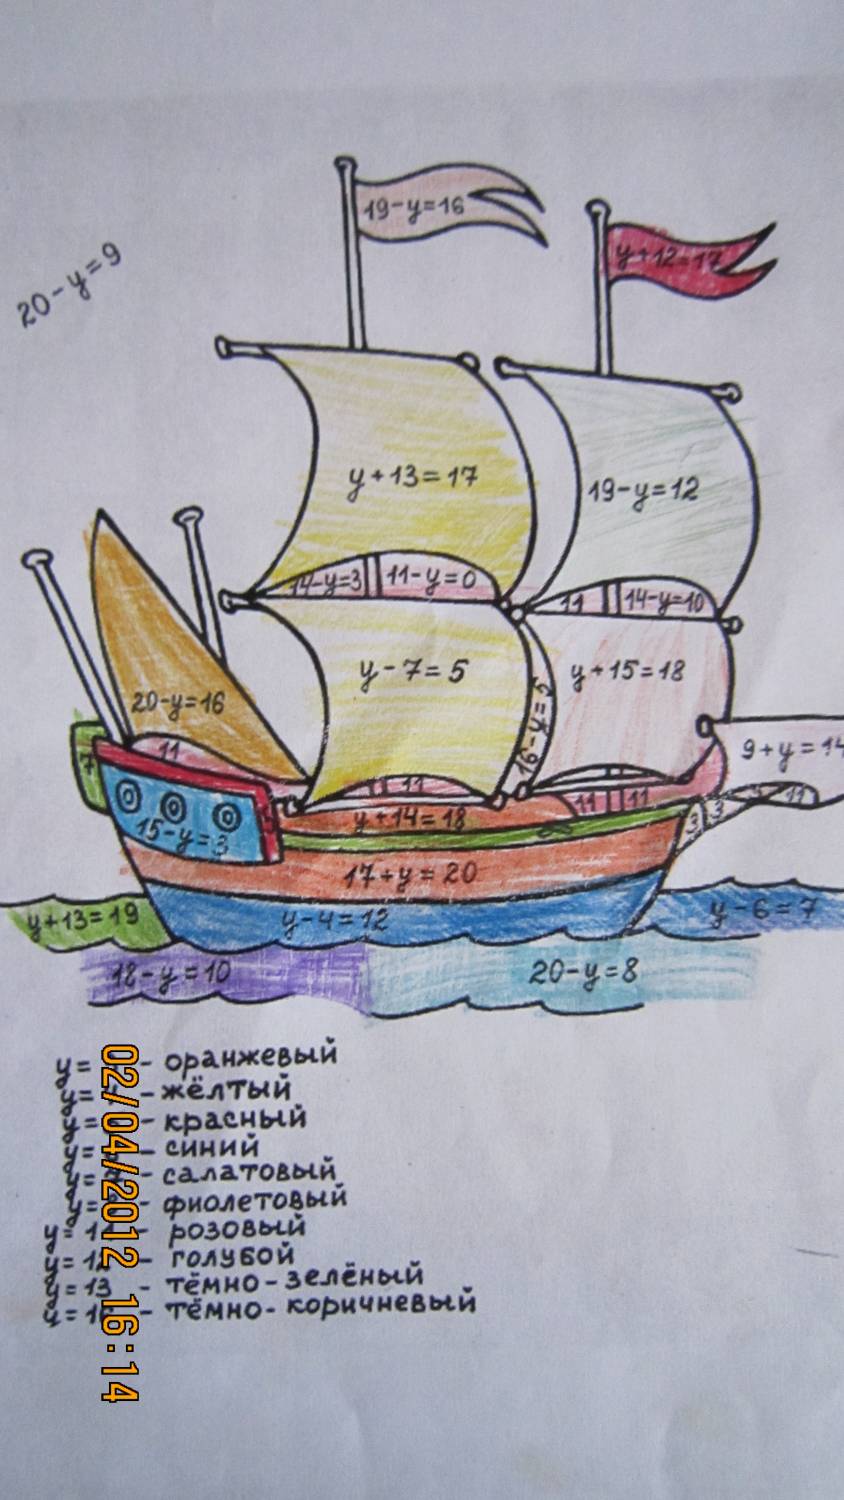 19-y=16
y+12=17
20-y=9
y+13=17
19-y=12
14-y=3
11-y=0
11
14-y=10
y-7=5
y+15=18
20-y=16
9+y=14
11
7
11
11
11
11
y+14=18
15-y=3
3
3
17+y=20
y+13=19
y-4=12
y-6=7
18-y=10
20-y=8
y= - оранжевый
y= - жёлтый
y= - красный
y= - синий
y= - салатовый
y= - фиолетовый
y= - розовый
y= - голубой
y=13 - тёмно-зелёный
y= - тёмно-коричневый
02/04/2012 16:14